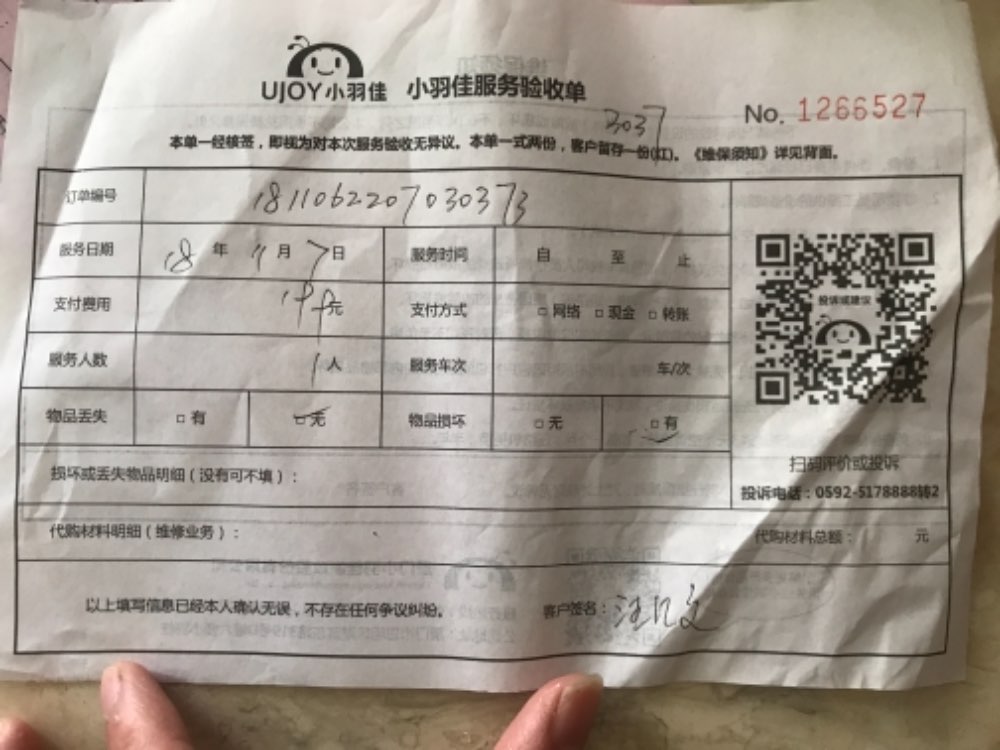 UJOY小羽佳 小羽佳服务验收单
No. 1266527
3037
本单一经核签，即视为对本次服务验收无异议。本单一式两份，客户留存一份(红)。《维保须知》详见背面。
订单编号 1811062207030373
服务日期 18 年 11 月 7 日 服务时间 自 至 止
支付费用 元 支付方式 □ 网络 □ 现金 □ 转账
服务人数 1 人 服务车次 车/次
物品丢失 □ 有 □ 无 物品损坏 □ 无 □ 有
投诉或建议
扫码评价或投诉
投诉电话：0592-5178888转2
损坏或丢失物品明细（没有可不填）：
代购材料明细（维修业务）： 代购材料总额： 元
以上填写信息已经本人确认无误，不存在任何争议纠纷。 客户签名：